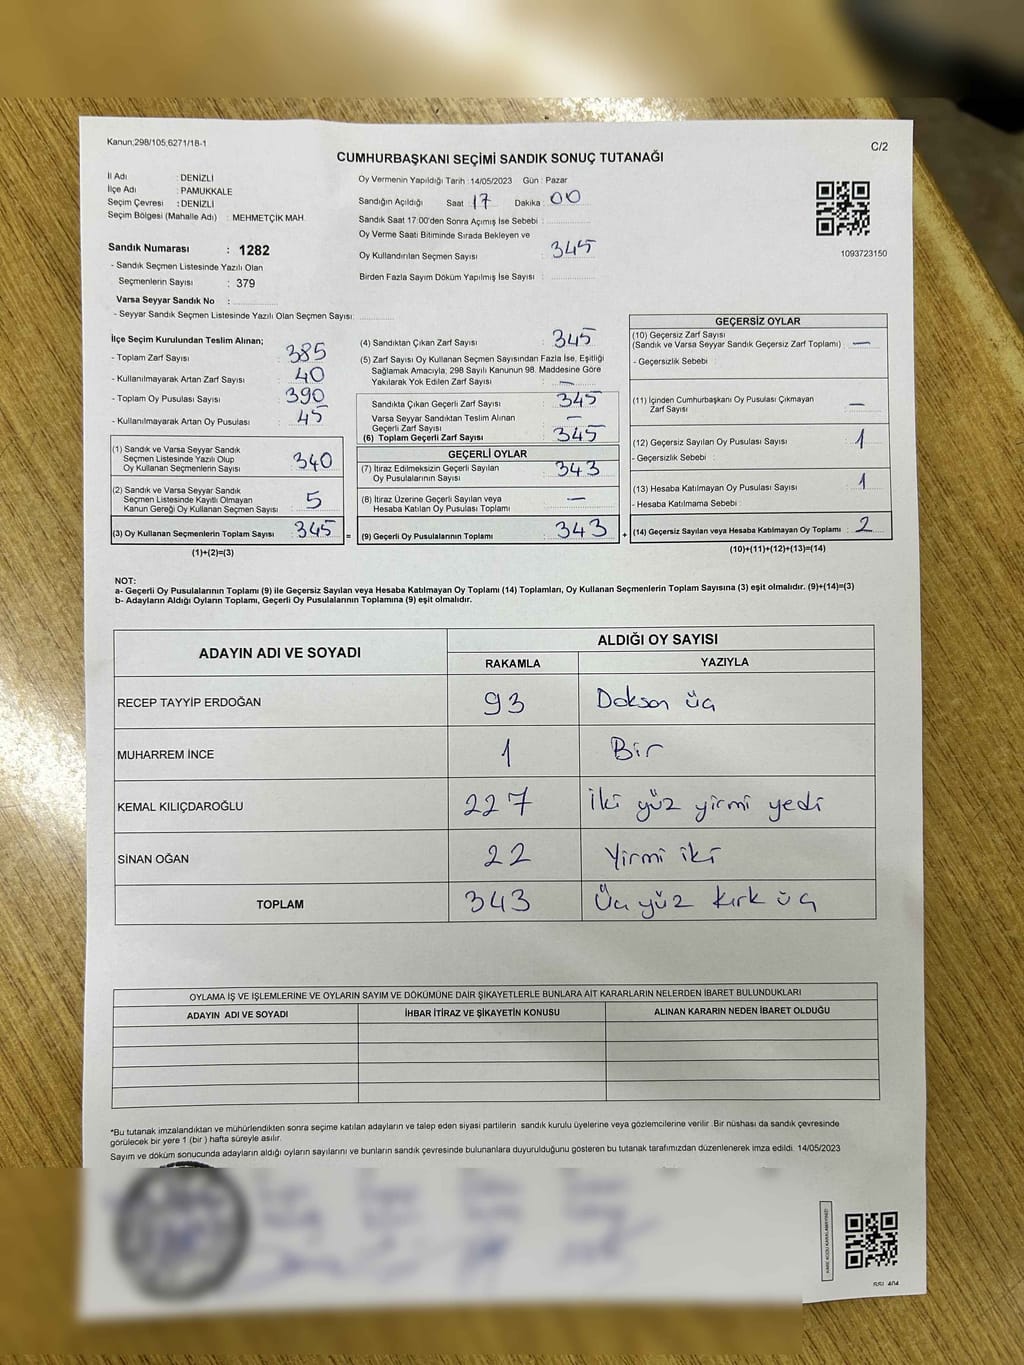 Kanun;298/105;6271/18-1
C/2
CUMHURBAŞKANI SEÇİMİ SANDIK SONUÇ TUTANAĞI
İl Adı : DENİZLİ
İlçe Adı : PAMUKKALE
Seçim Çevresi : DENİZLİ
Seçim Bölgesi (Mahalle Adı) : MEHMETÇİK MAH.
Sandık Numarası : 1282
- Sandık Seçmen Listesinde Yazılı Olan
Seçmenlerin Sayısı : 379
Varsa Seyyar Sandık No :
- Seyyar Sandık Seçmen Listesinde Yazılı Olan Seçmen Sayısı:
Oy Vermenin Yapıldığı Tarih : 14/05/2023 Gün : Pazar
Sandığın Açıldığı Saat 17 Dakika : 00
Sandık Saat 17:00'den Sonra Açımış İse Sebebi :
Oy Verme Saati Bitiminde Sırada Bekleyen ve
Oy Kullandırılan Seçmen Sayısı : 345
Birden Fazla Sayım Döküm Yapılmış İse Sayısı :
1093723150
İlçe Seçim Kurulundan Teslim Alınan;
- Toplam Zarf Sayısı : 385
- Kullanılmayarak Artan Zarf Sayısı : 40
- Toplam Oy Pusulası Sayısı : 390
- Kullanılmayarak Artan Oy Pusulası : 45
(1) Sandık ve Varsa Seyyar Sandık
Seçmen Listesinde Yazılı Olup
Oy Kullanan Seçmenlerin Sayısı : 340
(2) Sandık ve Varsa Seyyar Sandık
Seçmen Listesinde Kayıtlı Olmayan
Kanun Gereği Oy Kullanan Seçmen Sayısı : 5
(3) Oy Kullanan Seçmenlerin Toplam Sayısı : 345 =
(1)+(2)=(3)
(4) Sandıktan Çıkan Zarf Sayısı : 345
(5) Zarf Sayısı Oy Kullanan Seçmen Sayısından Fazla İse, Eşitliği
Sağlamak Amacıyla, 298 Sayılı Kanunun 98. Maddesine Göre
Yakılarak Yok Edilen Zarf Sayısı : —
Sandıkta Çıkan Geçerli Zarf Sayısı : 345
Varsa Seyyar Sandıktan Teslim Alınan
Geçerli Zarf Sayısı : —
(6) Toplam Geçerli Zarf Sayısı : 345
GEÇERLİ OYLAR
(7) İtiraz Edilmeksizin Geçerli Sayılan
Oy Pusulalarının Sayısı : 343
(8) İtiraz Üzerine Geçerli Sayılan veya
Hesaba Katılan Oy Pusulası Toplamı : —
(9) Geçerli Oy Pusulalarının Toplamı : 343 +
GEÇERSİZ OYLAR
(10) Geçersiz Zarf Sayısı
(Sandık ve Varsa Seyyar Sandık Geçersiz Zarf Toplamı) : —
- Geçersizlik Sebebi :
(11) İçinden Cumhurbaşkanı Oy Pusulası Çıkmayan
Zarf Sayısı : —
(12) Geçersiz Sayılan Oy Pusulası Sayısı : 1
- Geçersizlik Sebebi :
(13) Hesaba Katılmayan Oy Pusulası Sayısı : 1
- Hesaba Katılmama Sebebi :
(14) Geçersiz Sayılan veya Hesaba Katılmayan Oy Toplamı : 2
(10)+(11)+(12)+(13)=(14)
NOT:
a- Geçerli Oy Pusulalarının Toplamı (9) ile Geçersiz Sayılan veya Hesaba Katılmayan Oy Toplamı (14) Toplamları, Oy Kullanan Seçmenlerin Toplam Sayısına (3) eşit olmalıdır. (9)+(14)=(3)
b- Adayların Aldığı Oyların Toplamı, Geçerli Oy Pusulalarının Toplamına (9) eşit olmalıdır.
ADAYIN ADI VE SOYADI ALDIĞI OY SAYISI
RAKAMLA YAZIYLA
RECEP TAYYİP ERDOĞAN 93 Doksan üç
MUHARREM İNCE 1 Bir
KEMAL KILIÇDAROĞLU 227 İki yüz yirmi yedi
SİNAN OĞAN 22 Yirmi iki
TOPLAM 343 Üç yüz kırk üç
OYLAMA İŞ VE İŞLEMLERİNE VE OYLARIN SAYIM VE DÖKÜMÜNE DAİR ŞİKAYETLERLE BUNLARA AİT KARARLARIN NELERDEN İBARET BULUNDUKLARI
ADAYIN ADI VE SOYADI İHBAR İTİRAZ VE ŞİKAYETİN KONUSU ALINAN KARARIN NEDEN İBARET OLDUĞU
*Bu tutanak imzalandıktan ve mühürlendikten sonra seçime katılan adayların ve talep eden siyasi partilerin sandık kurulu üyelerine veya gözlemcilerine verilir .Bir nüshası da sandık çevresinde
görülecek bir yere 1 (bir ) hafta süreyle asılır.
Sayım ve döküm sonucunda adayların aldığı oyların sayılarını ve bunların sandık çevresinde bulunanlara duyurulduğunu gösteren bu tutanak tarafımızdan düzenlenerek imza edildi. 14/05/2023